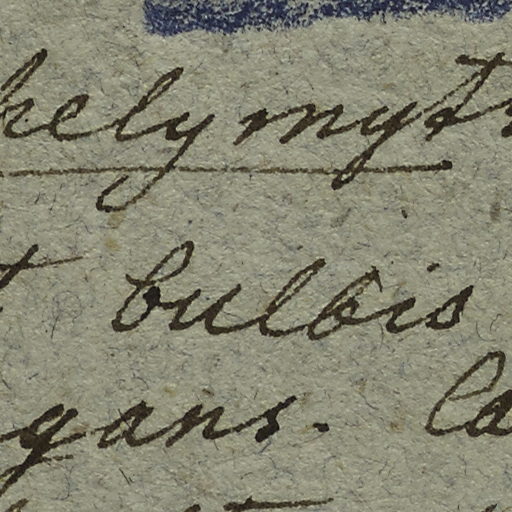 helymytr
t bulbis
gans. Ca